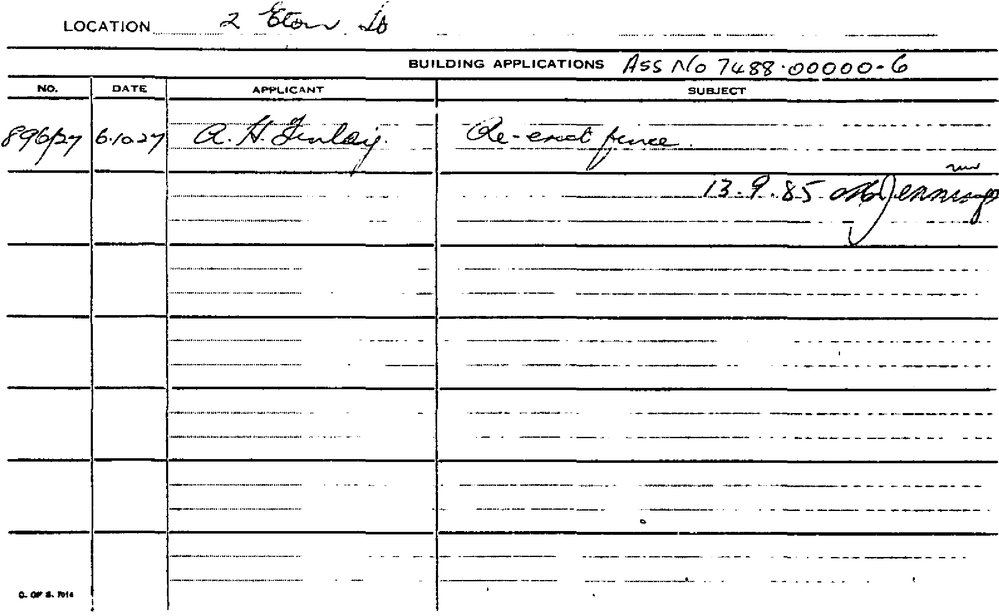 LOCATION 2 Eton St
BUILDING APPLICATIONS Ass No 7488.00000-6
NO. DATE APPLICANT SUBJECT
896/27 6.10.27 A. H. Finlay. Re-erect fence.
13.9.85 Jennings
C. OF S. 7014